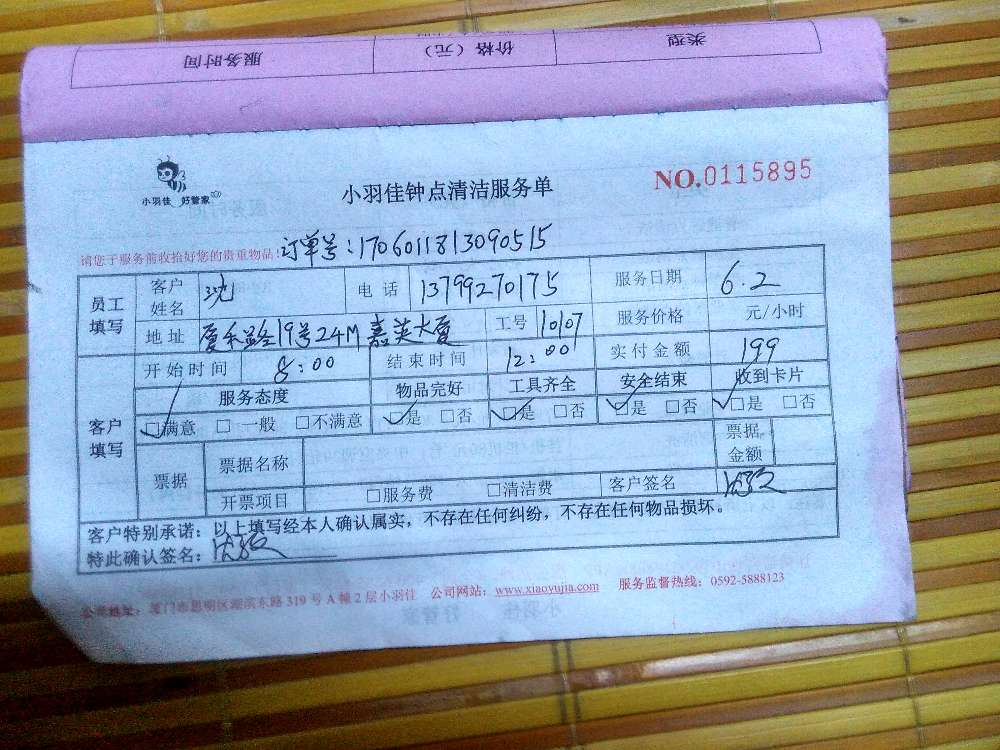 服务时间 价格（元） 类型
小羽佳 好管家
小羽佳钟点清洁服务单
NO.0115895
请您于服务前收拾好您的贵重物品！
订单号：1706011813090515
员工填写 客户姓名 沈 电话 13799270175 服务日期 6.2
地址 19号24M 嘉英大厦 工号 10107 服务价格 元/小时
开始时间 8:00 结束时间 12:00 实付金额 199
客户填写 服务态度 物品完好 工具齐全 安全结束 收到卡片
☑满意 □一般 □不满意 ☑是 □否 ☑是 □否 ☑是 □否 ☑是 □否
票据 票据名称 票据金额
开票项目 □服务费 □清洁费 客户签名
客户特别承诺：以上填写经本人确认属实，不存在任何纠纷，不存在任何物品损坏。
特此确认签名：
公司地址：厦门市思明区湖滨东路319号A幢2层小羽佳 公司网站：www.xiaoyujia.com 服务监督热线：0592-5888123